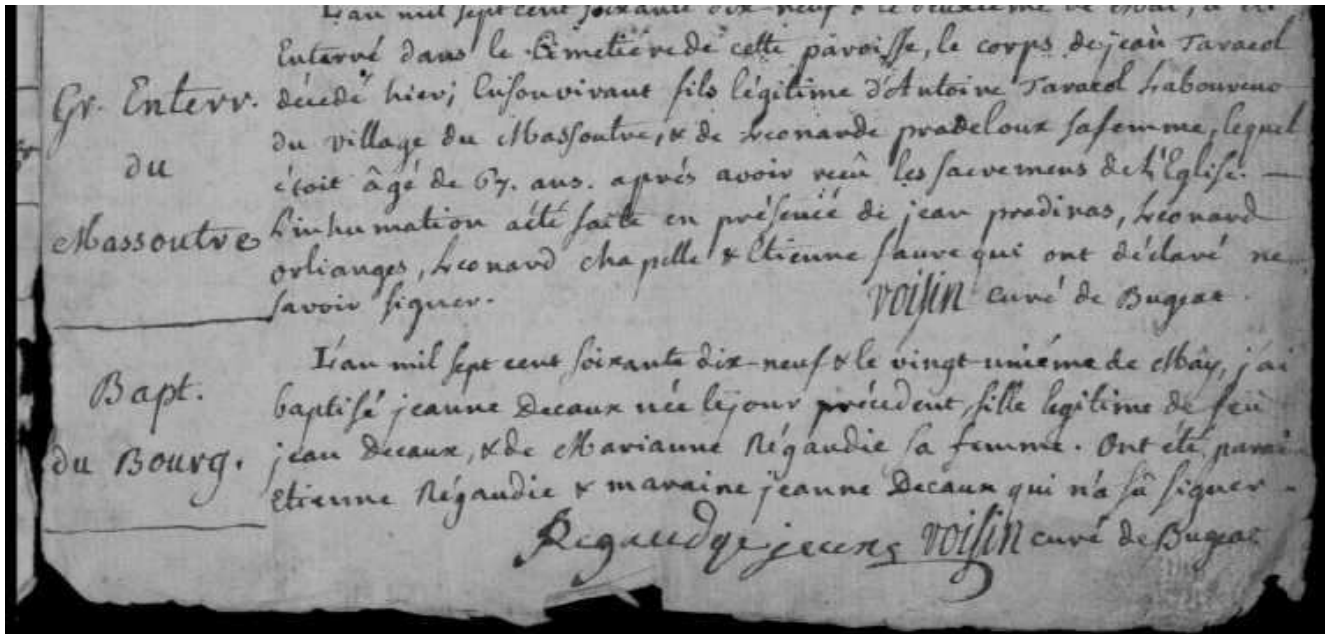 L'an mil sept cent soixante dix-neuf & le deuxième de Mai, a été
Enterré dans le Cimetière de cette paroisse, le corps de jean Taraeol
Gr. Enterr.
décédé hier; En son vivant fils légitime d'Antoine Taraeol Laboureur
du village du Massoutre, & de Léonarde pradeloux sa femme, lequel
du
étoit âgé de 67. ans. après avoir reçû les sacremens de L'Eglise. —
Massoutre
L'inhumation a été faite en présence de jean pradinas, Léonard
orlianges, Léonard chapelle & Etienne faure qui ont déclaré ne
savoir signer.
voisin curé de Bugeat.
L'an mil sept cent soixante dix-neuf & le vingt-unième de May, j'ai
Bapt.
baptisé jeanne Decaux née le jour précédent, fille legitime de feu
du Bourg.
jean Decaux, & de Marianne Régaudie sa femme. Ont été parrai
Etienne Régaudie & maraine jeanne Decaux qui n'a sû signer -
Regaudye jeune voisin curé de Bugeat